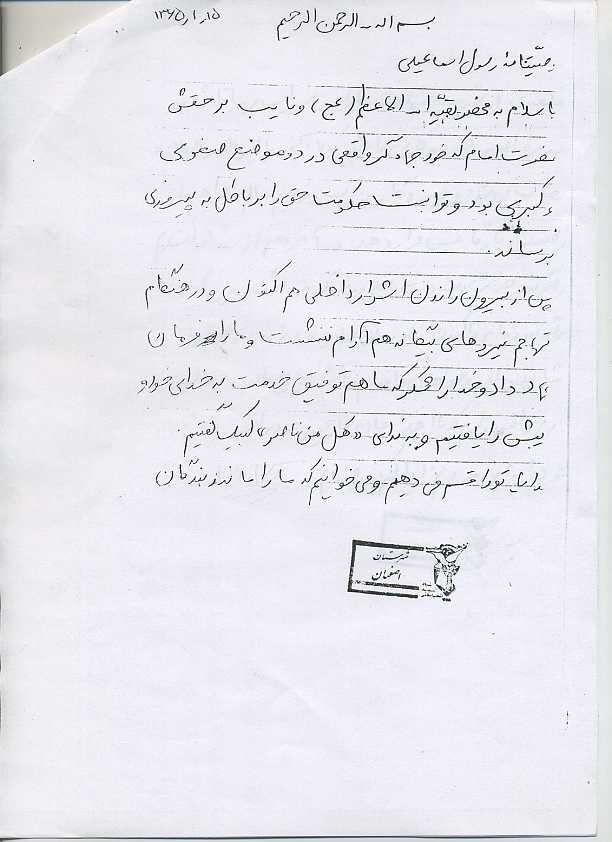 بسم الله الرحمن الرحیم
۱۳۶۵/۱/۱۵
وصیتنامهٔ رسول اسماعیلی
با سلام به محضر بقیة الله الاعظم (عج) و نایب بر حقش
حضرت امام که خود جهادگر واقعی در دو موضع صغری
و کبری بود و توانست حکومت حق را بر باطل به پیروزی
برساند.
پس از بیرون راندن اشرار داخلی هم اکنون و در هنگام
تهاجم نیروهای بیگانه هم آرام ننشست و ما را فرمان
جهاد داد و خدا را شکر که ما هم توفیق خدمت به خدای خود و
را یافتیم و به ندای «هل من ناصر» لبیک گفتیم.
خدایا تو را قسم می دهیم و می خوانیم که ما را مانند بندگان
شهرستان
اصفهان